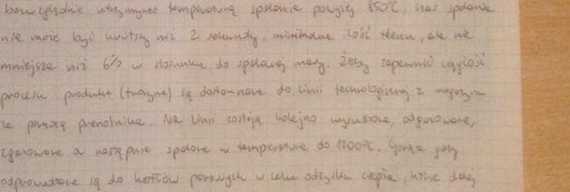 bezwzględnie utrzymywać temperaturę spalania powyżej 850°C, czas spalania
nie może być krótszy niż 2 sekundy, minimalna ilość tlenu, ale nie
mniejsza niż 6% w stosunku do spalanej masy. Żeby zapewnić ciągłość
procesu produkt (tuszyne) są dostarczane do linii technologicznej z magazynu
za pomocą przenośnika. Na linii zostają kolejno wysuszone, odgazowane,
zgazowane a następnie spalone w temperaturze do 1200°C. Gorące gazy
odprowadzane są do kotłów parowych w celu odzysku ciepła, które dalej